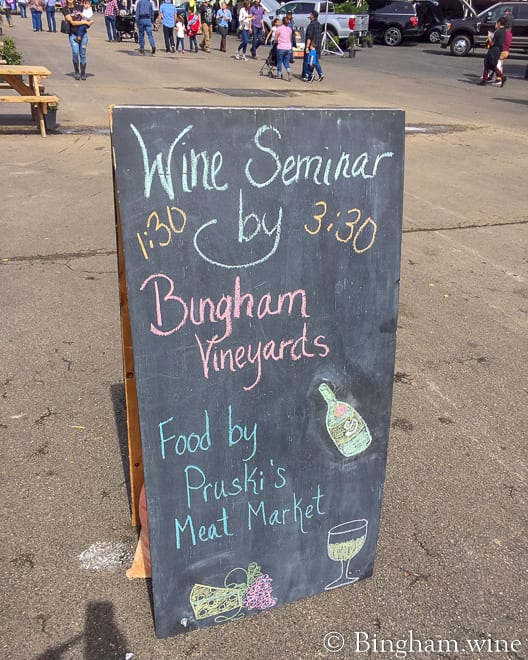 Wine Seminar
1:30 by 3:30
Bingham
Vineyards
Food by
Pruski's
Meat Market
© Bingham.wine